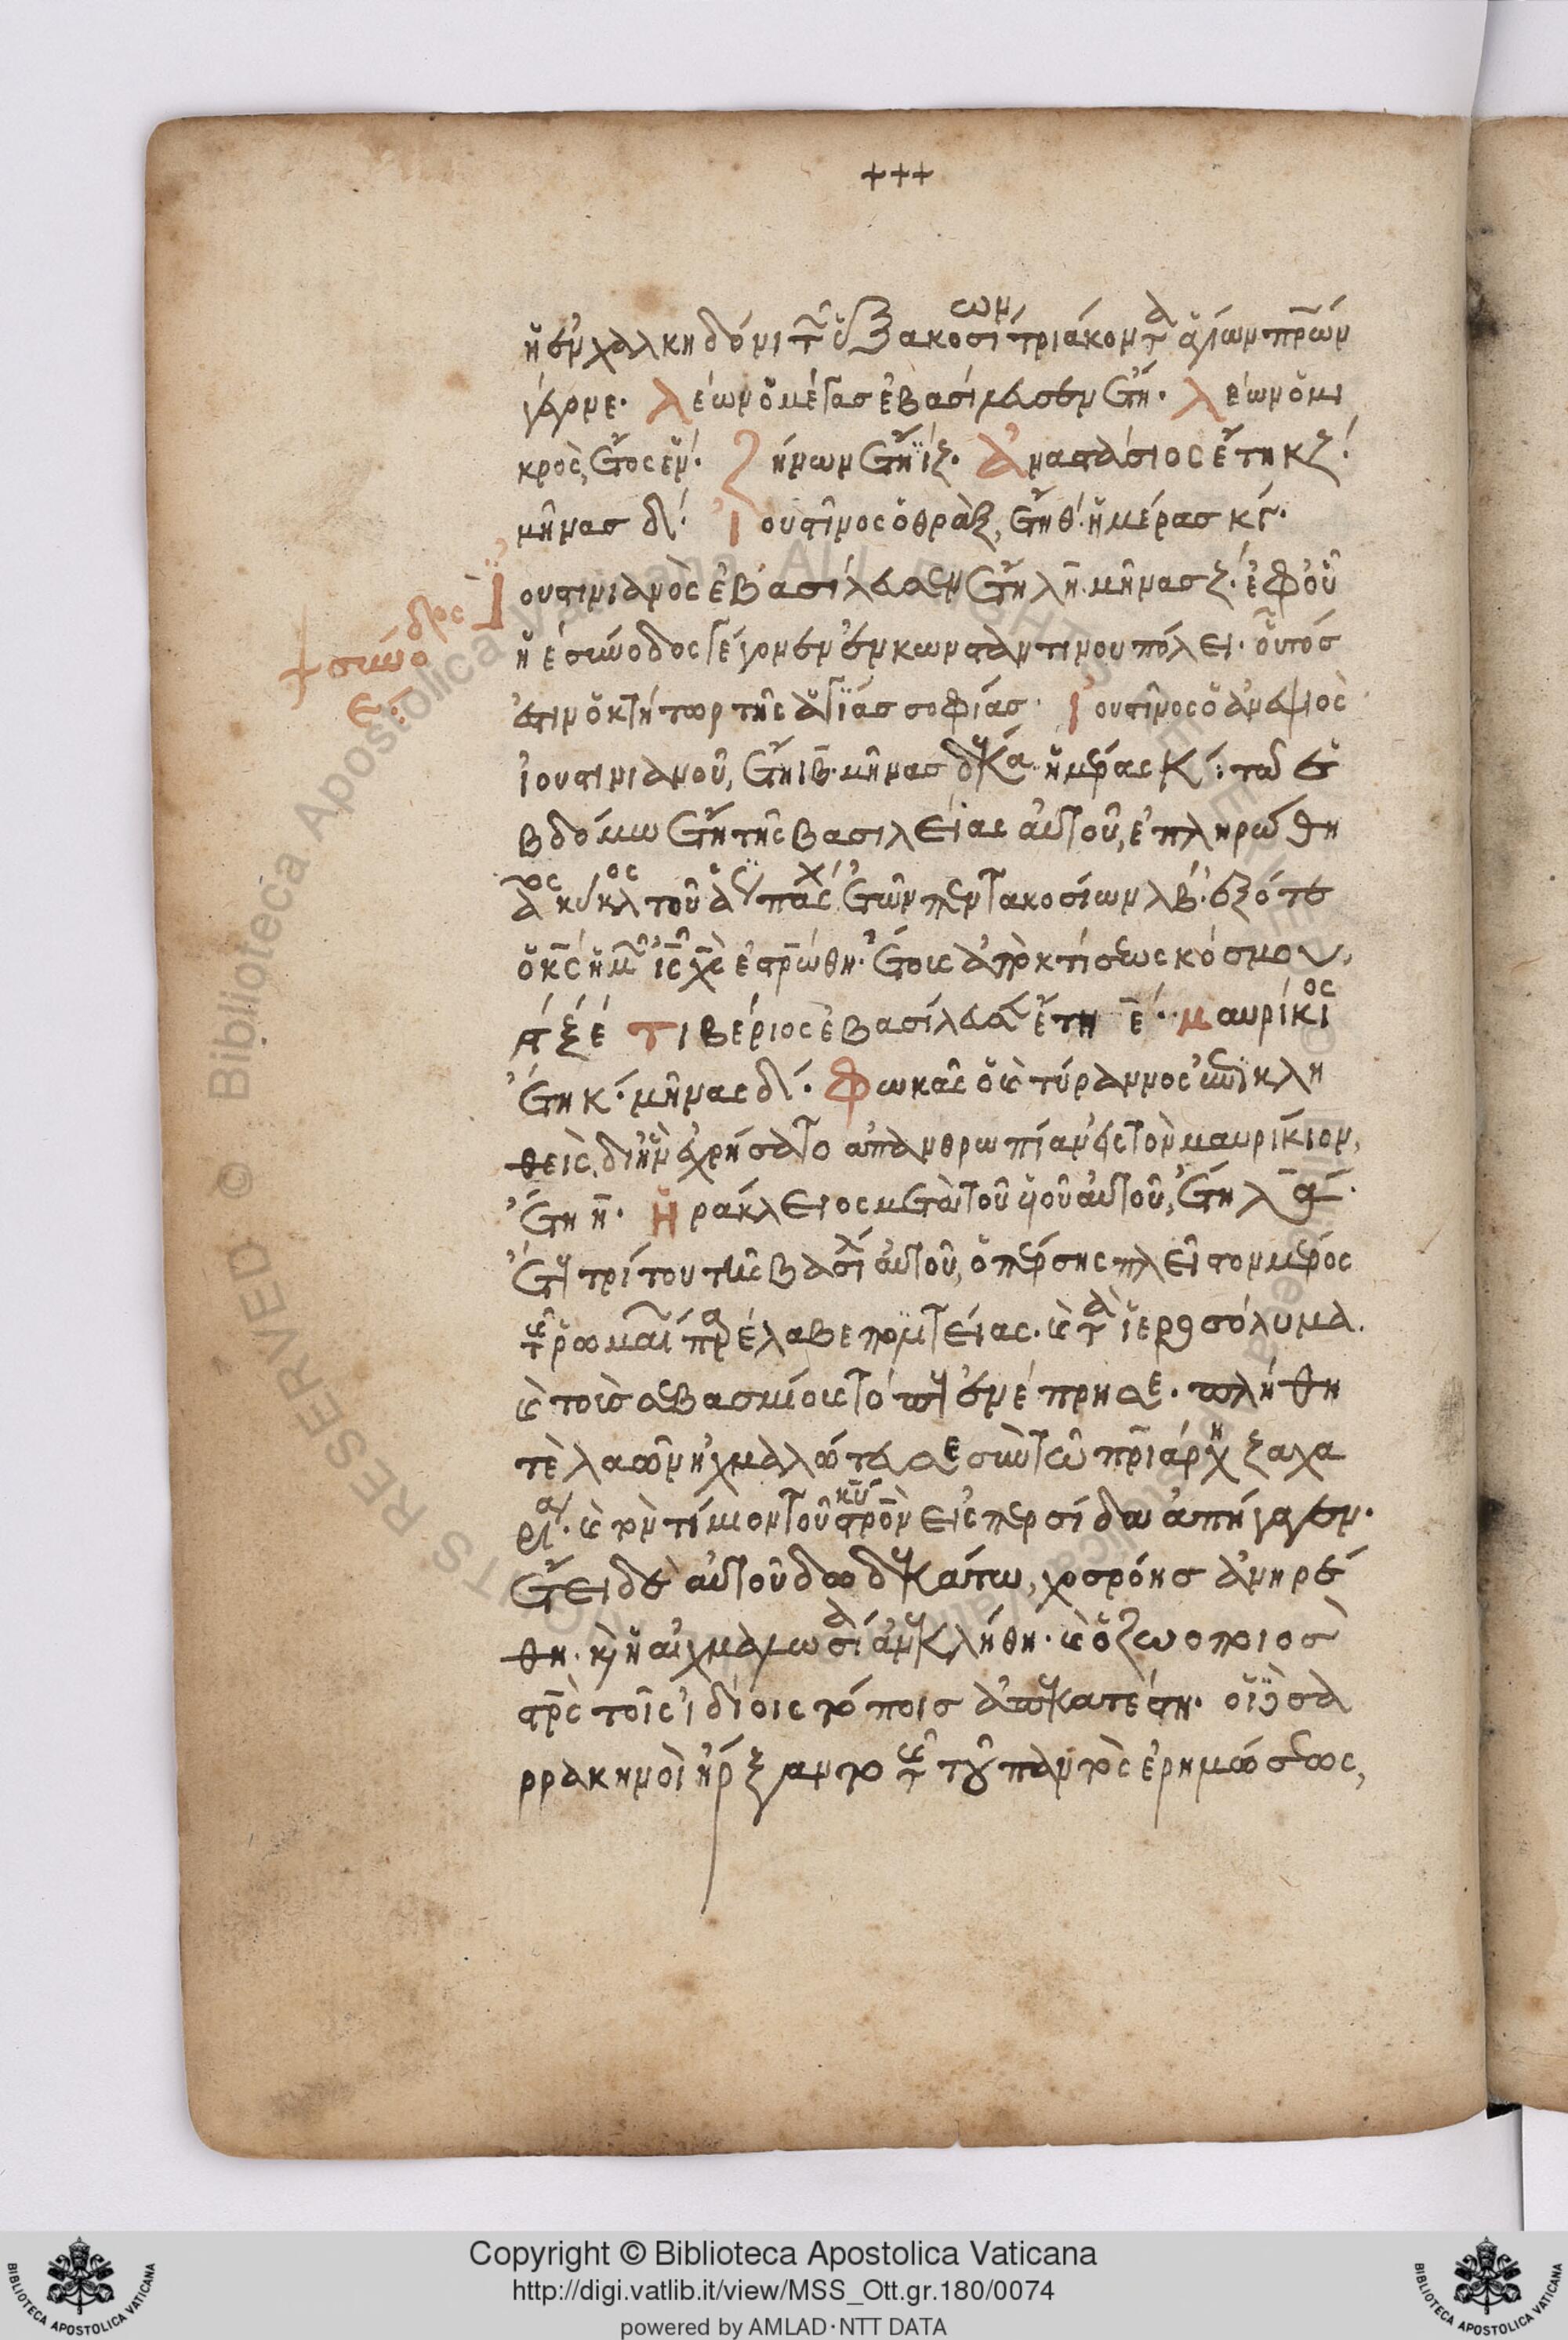 +++
ἡ ἐν χαλκηδόνι τῶν ἑξακοσίων τριάκοντα ἁγίων πρων
γέγονε. λέων ὁ μέγας ἐβασίλευσεν ἔτη. λέων ὁ μι
κρὸς, ἔτος ἕν. ζήνων ἔτη ιζ. ἀναστάσιος ἔτη κζ.
μῆνας δ. ἰουστῖνος ὁ θρὰξ, ἔτη θ. ἡμέρας κγ.
Ἰουστινιανὸς ἐβασίλευσεν ἔτη λη. μῆνας ζ. ἐφ οὗ
+ σύνοδος
ε:
ἡ ε σύνοδος γέγονεν ἐν κωνσταντινουπόλει. οὗτός
ἐστιν ὁ κτήτωρ τῆς ἁγίας σοφίας. ἰουστῖνος ὁ ἀνεψιὸς
ἰουστινιανοῦ, ἔτη ιβ. μῆνας δέκα. ἡμέρας κ: τῶ ἑ
βδόμω ἔτη τῆς βασιλείας αὐτοῦ, ἐπληρώθη
κύκλος τοῦ πάσχα ἐτῶν πεντακοσίων λβ. ἐξ ότε
ὁ κς ἡμῶν ις χς ἐστρώθη. ἔτος ἀπὸ κτίσεως κόσμου,
ϛξε τιβέριος ἐβασίλευσεν ἔτη ε. μαυρίκιος
ἔτη κ. μῆνας δ. φωκᾶς ὁ καὶ τύραννος ἐπικλη
θεὶς, δι ἣν ἐχρήσατο ἀπανθρωπίαν εἰς τὸν μαυρίκιον,
ἔτη η. ἡράκλειος μετὰ τοῦ υἱοῦ αὐτοῦ, ἔτη λ
ἔτει τρίτου τῆς βασιλεί αὐτοῦ, ὁ πέρσης πλεῖστον μέρος
τῆς ῥωμαι παρέλαβε πολιτείας. καὶ τὰ ἱεροσόλυμα.
καὶ τοὺς σεβασμίους τόπους ἐνέπρησε. πλήθη
τὲ λαῶν ἠχμαλώτευσε σὺν τῶ πριάρχη ζαχα
ρία. καὶ τὸν τίμιον τοῦ κυ στρον εἰς περσίδα ἀπήγαγεν.
ἔτει δὲ αὐτοῦ δωδεκάτω, χοσρόης ἀνηρέ
θη. καὶ ἡ αἰχμαλωσία ἀνεκλήθη. καὶ ὁ ζωοποιὸς
στρς τοῖς ἰδίοις τόποις ἀποκατέστη. οἱ δὲ σα
ρρακηνοὶ ἤρξαντο τῆς τοῦ παντὸς ἐρημώσεως,
Copyright © Biblioteca Apostolica Vaticana
http://digi.vatlib.it/view/MSS_Ott.gr.180/0074
powered by AMLAD·NTT DATA
BIBLIOTECA APOSTOLICA VATICANA
BIBLIOTECA APOSTOLICA VATICANA